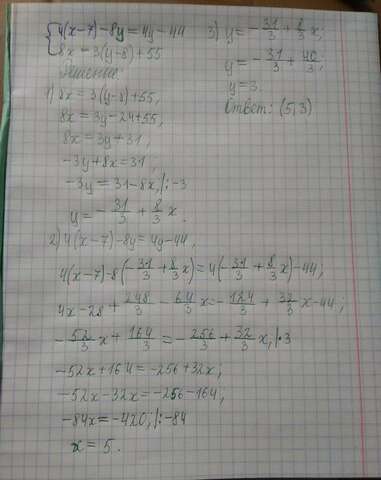 {4(x-7)-8y=4y-44
8x=3(y-8)+55
Решение
1) 8x=3(y-8)+55,
8x=3y-24+55,
8x=3y+31,
-3y+8x=31;
-3y=31-8x,/:-3
y=-31/3+8/3x.
2) 4(x-7)-8y=4y-44,
4(x-7)-8(-31/3+8/3x)=4(-31/3+8/3x)-44;
4x-28+248/3-64/3x=-124/3+32/3x-44;
-52/3x+164/3=-256/3+32/3x,/·3
-52x+164=-256+32x,
-52x-32x=-256-164;
-84x=-420,/:-84
x=5.
3) y=-31/3+8/3x;
y=-31/3+40/3;
y=3.
Ответ: (5;3)